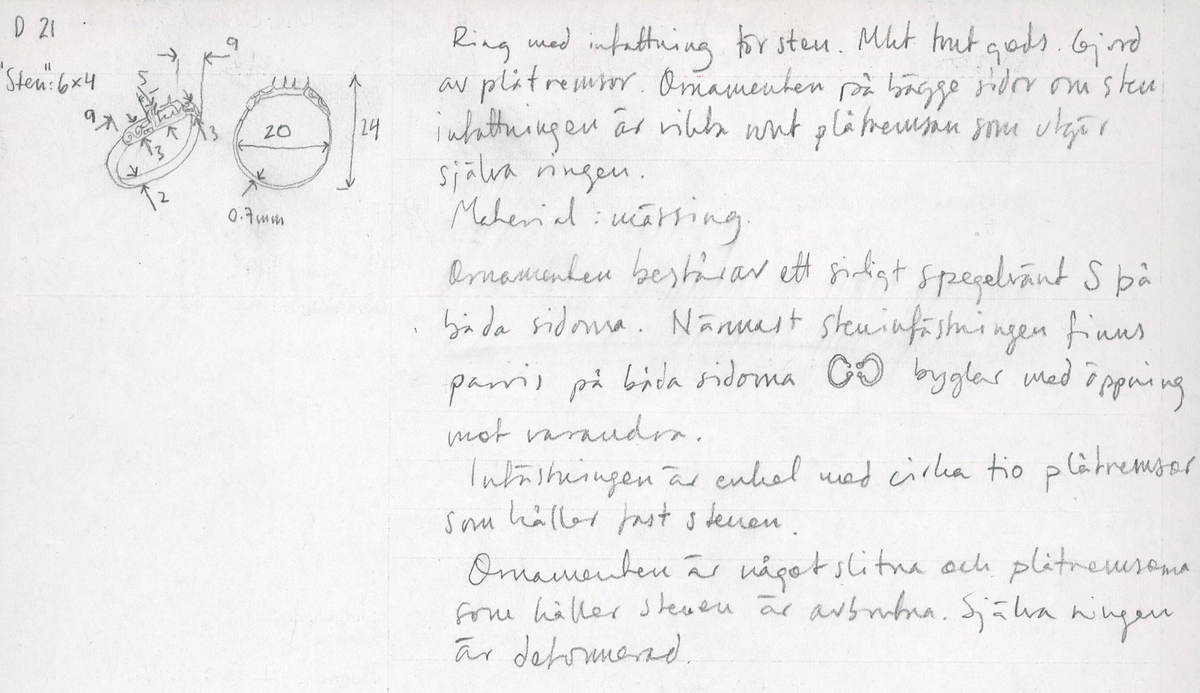 D 21
"Sten": 6x4
9
5
9
3
3
2
20
24
0.7mm
Ring med infattning för sten. Mkt tunt gods. Gjord
av plåtremsor. Ornamenten på bägge sidor om sten
infattningen är vikta runt plåtremsan som utgör
själva ringen.
Material: mässing.
Ornamenten består av ett sirligt spegelvänt S på
båda sidorna. Närmast steninfästningen finns
parvis på båda sidorna byglar med öppning
mot varandra.
Infästningen är enkel med cirka tio plåtremsor
som håller fast stenen.
Ornamenten är något slitna och plåtremsorna
som håller stenen är avbrutna. Själva ringen
är deformerad.